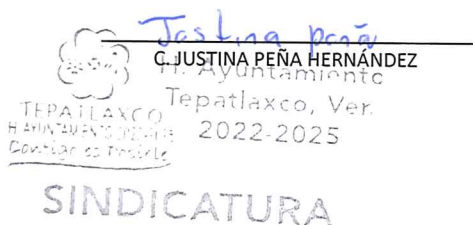 Jostina peña
C. JUSTINA PEÑA HERNÁNDEZ
H. Ayuntamiento
Tepatlaxco, Ver.
2022-2025
TEPATLAXCO
H. AYUNTAMIENTO
Contigo es Posible
SINDICATURA